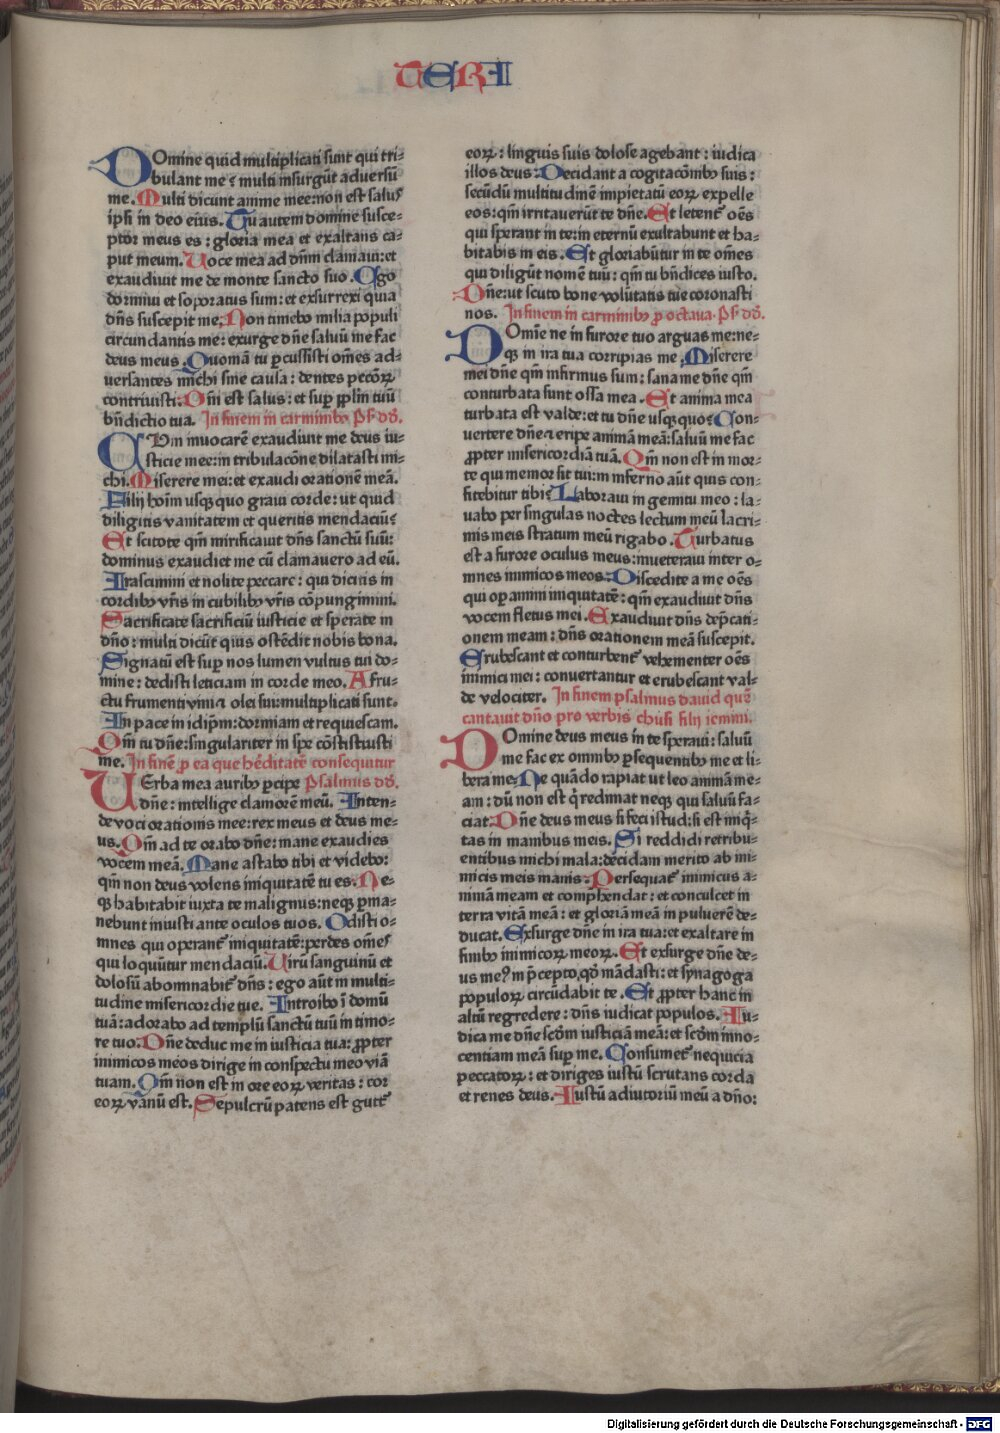 TERI
Domine quid multiplicati sunt qui tri⸗
bulant me? multi insurgūt adversū
me. Multi dicunt anime mee: non est salus
ipsi in deo eius. Tu autem domine susce⸗
ptor meus es: gloria mea et exaltans ca⸗
put meum. Voce mea ad dn̄m clamaui: et
exaudiuit me de monte sancto suo. Ego
dormiui et soporatus sum: et exsurrexi quia
dn̄s suscepit me. Non timebo milia populi
circundantis me: exurge dn̄e saluū me fac
deus meus. Quoniā tu ꝑcussisti om̄es ad⸗
versantes michi sine causa: dentes pccōꝝ
contriuisti. Dn̄i est salus: et suꝑ ꝓplm̄ tuū
bn̄dictio tua. In finem in carminibꝰ Ps̄ dd̄.
CUm inuocarē exaudiuit me deus iu⸗
sticie mee: in tribulacōne dilatasti mi⸗
chi. Miserere mei: et exaudi orationē meā.
Filij hoīm usqꝫ quo graui corde: ut quid
diligitis vanitatem et queritis mendaciū?
Et scitote qm̄ mirificauit dn̄s sanctū suū:
dominus exaudiet me cū clamauero ad eū.
Irascimini et nolite peccare: qui dicitis in
cordibꝰ vr̄is in cubilibꝰ vr̄is cōpungimini.
Sacrificate sacrificiū iusticie et sperate in
dn̄o: multi dicūt quis ostēdit nobis bona.
Signatū est suꝑ nos lumen vultus tui do⸗
mine: dedisti leticiam in corde meo. A fru⸗
ctu frumenti vini ⁊ olei sui: multiplicati sunt.
In pace in idip̄m: dormiam et requiescam.
Qm̄ tu dn̄e: singulariter in spe cōstituisti
me. In finē ꝑ ea que hēditatē consequitur
VErba mea auribꝰ ꝑcipe Psalmus dd̄.
dn̄e: intellige clamorē meū. Inten⸗
de voci orationis mee: rex meus et deus me⸗
us. Qm̄ ad te orabo dn̄e: mane exaudies
vocem meā. Mane astabo tibi et videbo:
qm̄ non deus volens iniquitatē tu es. Ne⸗
qꝫ habitabit iuxta te malignus: neqꝫ ꝑma⸗
nebunt iniusti ante oculos tuos. Odisti o⸗
mnes qui operant̄ iniquitatē: perdes om̄es
qui loquūtur mendaciū. Virū sanguinū et
dolosū abominabit̄ dn̄s: ego aūt in multi⸗
tudine misericordie tue. Introibo ī domū
tuā: adorabo ad templū sanctū tuū in timo⸗
re tuo. Dn̄e deduc me in iusticia tua: ꝓpter
inimicos meos dirige in conspectu meo viā
tuam. Qm̄ non est in ore eoꝝ veritas: cor
eoꝝ vanū est. Sepulcrū patens est gutt̄
eoꝝ: linguis suis dolose agebant: iudica
illos deus. Decidant a cogitacōibꝰ suis:
secūdū multitudinē impietatū eoꝝ expelle
eos: qm̄ irritauerūt te dn̄e. Et letent̄ oēs
qui sperant in te: in eternū exultabunt et ha⸗
bitabis in eis. Et gloriabūtur in te om̄es
qui diligūt nomē tuū: qm̄ tu bn̄dices iusto.
Dn̄e: ut scuto bone volūtatis tue coronasti
nos. In finem in carminibꝰ ꝓ octaua. Ps̄ dd̄.
DOmīe ne in furore tuo arguas me: ne⸗
qꝫ in ira tua corripias me. Miserere
mei dn̄e qm̄ infirmus sum: sana me dn̄e qm̄
conturbata sunt ossa mea. Et anima mea
turbata est valde: et tu dn̄e usqꝫ quo? Con⸗
uertere dn̄e ⁊ eripe animā meā: saluū me fac
ꝓpter misericordiā tuā. Qm̄ non est in mor⸗
te qui memor sit tui: in inferno aūt quis con⸗
fitebitur tibi? Laboraui in gemitu meo: la⸗
uabo per singulas noctes lectum meū lacri⸗
mis meis stratum meū rigabo. Turbatus
est a furore oculus meus: inueteraui inter o⸗
mnes inimicos meos. Discedite a me oēs
qui oꝑamini iniquitatē: qm̄ exaudiuit dn̄s
vocem fletus mei. Exaudiuit dn̄s dep̄cati⸗
onem meam: dn̄s orationem meā suscepit.
Erubescant et conturbent̄ vehementer oēs
inimici mei: conuertantur et erubescant val⸗
de velociter. In finem psalmus dauid quē
cantauit dn̄o pro verbis chusi filij iemini.
DOmine deus meus in te speraui: saluū
me fac ex omnibꝰ ꝑsequentibꝰ me et li⸗
bera me. Ne quādo rapiat ut leo animā me⸗
am: dū non est q̄ redimat neqꝫ qui saluū fa⸗
ciat. Dn̄e deus meus si feci istud: si est iniq̄⸗
tas in manibus meis. Si reddidi retribu⸗
entibus michi mala: decidam merito ab ini⸗
micis meis inanis. Persequat̄ inimicus a⸗
nimā meam et comp̄hendat: et conculcet in
terra vitā meā: et gloriā meā in puluerē de⸗
ducat. Exsurge dn̄e in ira tua: et exaltare in
finibꝰ inimicoꝝ meoꝝ. Et exsurge dn̄e de⸗
us meꝰ in p̄cepto qd̄ mādasti: et synagoga
populoꝝ circūdabit te. Et ꝓpter hanc in
altū regredere: dn̄s iudicat populos. Iu⸗
dica me dn̄e scd̄m iusticiā meā: et scd̄m inno⸗
centiam meā suꝑ me. Consumet̄ nequicia
peccatoꝝ: et diriges iustū scrutans corda
et renes deus. Iustū adiutoriū meū a dn̄o:
Digitalisierung gefördert durch die Deutsche Forschungsgemeinschaft - DFG